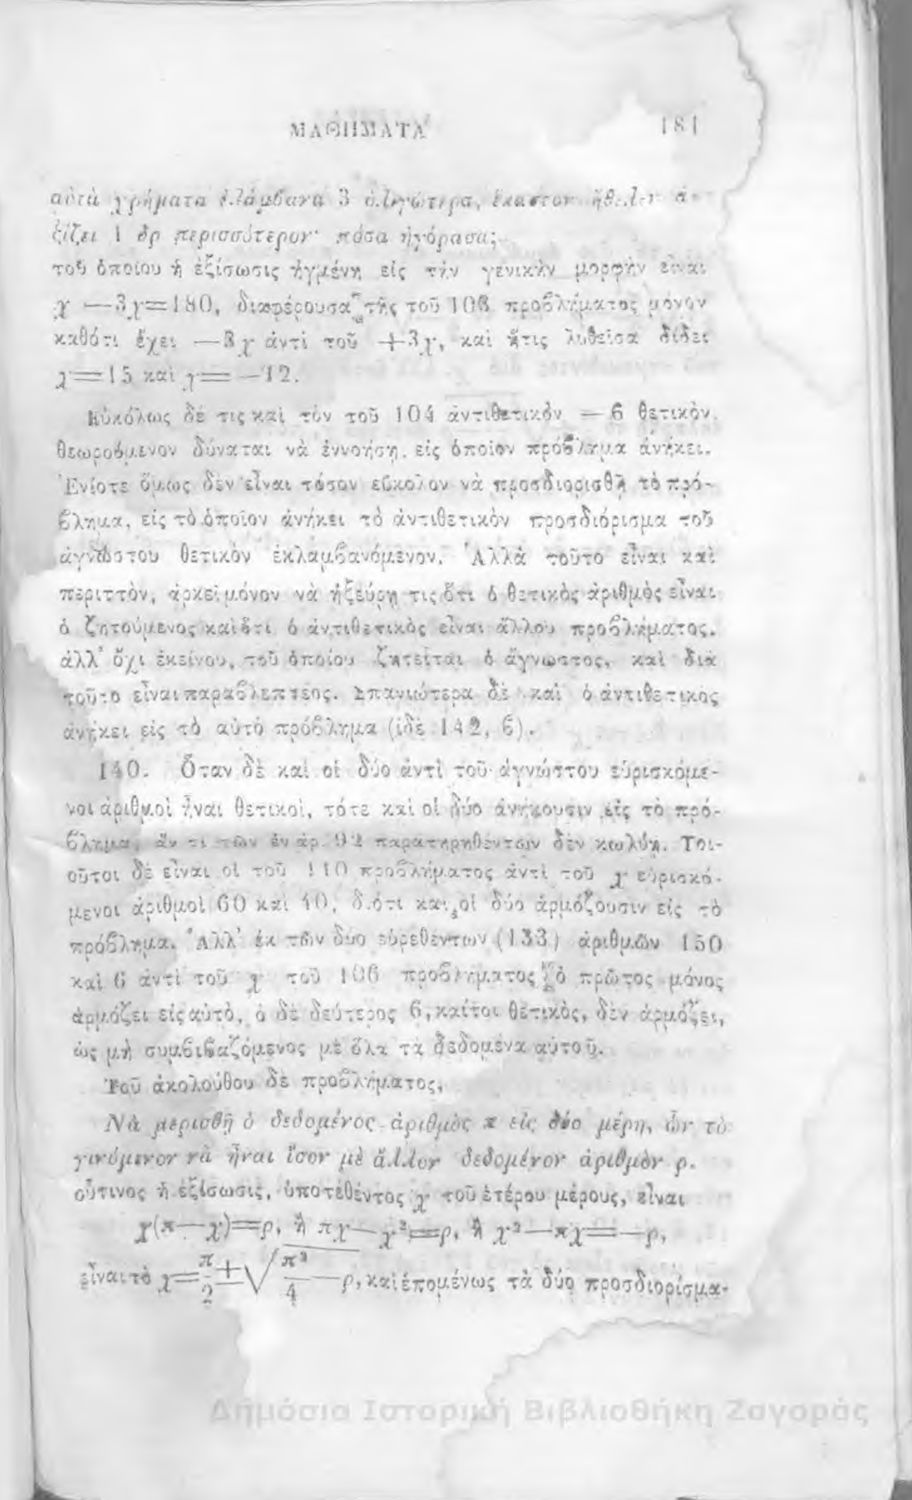 ΜΑΘΗΜΑΤΑ 181
αὐτὰ χρήματα ἐλάμβανα 3 ὀλιγώτερα, ἕκαστον ἤθελεν
ξίζει 1 δρ περισσότερον· πόσα ἠγόρασα;
τοῦ ὁποίου ἡ ἐξίσωσις ἠγμένη εἰς τὴν γενικὴν μορφὴν εἶναι
χ —3χ=180, διαφέρουσα τῆς τοῦ 106 προβλήματος μόνον
καθότι ἔχει —3χ ἀντὶ τοῦ +3χ, καὶ ἥτις λυθεῖσα δίδει
χ=15 καὶ χ=—12.
Εὐκόλως δέ τις καὶ τὸν τοῦ 104 ἀντιθετικὸν —6 θετικὸν
θεωρούμενον δύναται νὰ ἐννοήσῃ, εἰς ὁποῖον πρόβλημα ἀνήκει.
Ἐνίοτε ὅμως δὲν εἶναι τόσον εὔκολον νὰ προσδιορισθῇ τὸ πρό-
βλημα, εἰς τὸ ὁποῖον ἀνήκει τὸ ἀντιθετικὸν προσδιόρισμα τοῦ
ἀγνώστου θετικὸν ἐκλαμβανόμενον. Ἀλλὰ τοῦτο εἶναι καὶ
περιττὸν, ἀρκεῖ μόνον νὰ ἠξεύρῃ τις ὅτι ὁ θετικὸς ἀριθμὸς εἶναι
ὁ ζητούμενος καὶ ὅτι ὁ ἀντιθετικὸς εἶναι ἄλλου προβλήματος,
ἀλλ᾽ ὄχι ἐκείνου, τοῦ ὁποίου ζητεῖται ὁ ἄγνωστος, καὶ διὰ
τοῦτο εἶναι παραβλεπτέος. Σπανιώτερα δὲ καὶ ὁ ἀντιθετικὸς
ἀνήκει εἰς τὸ αὐτὸ πρόβλημα (ἰδὲ 142, 6).
140. Ὅταν δὲ καὶ οἱ δύο ἀντὶ τοῦ ἀγνώστου εὑρισκόμε-
νοι ἀριθμοὶ ἦναι θετικοὶ, τότε καὶ οἱ δύο ἀνήκουσιν εἰς τὸ πρό-
βλημα, ἄν τι τῶν ἐν ἀρ. 92 παρατηρηθέντων δὲν κωλύῃ. Τοι-
οῦτοι δὲ εἶναι οἱ τοῦ 110 προβλήματος ἀντὶ τοῦ χ εὑρισκό-
μενοι ἀριθμοὶ 60 καὶ 40, διότι καὶ οἱ δύο ἁρμόζουσιν εἰς τὸ
πρόβλημα. Ἀλλ᾽ ἐκ τῶν δύο εὑρεθέντων (133) ἀριθμῶν 150
καὶ 6 ἀντὶ τοῦ χ τοῦ 106 προβλήματος ὁ πρῶτος μόνος
ἁρμόζει εἰς αὐτὸ, ὁ δὲ δεύτερος 6, καίτοι θετικὸς, δὲν ἁρμόζει,
ὡς μὴ συμβιβαζόμενος μὲ ὅλα τὰ δεδομένα αὐτοῦ.
Τοῦ ἀκολούθου δὲ προβλήματος,
Νὰ μερισθῇ ὁ δεδομένος ἀριθμὸς π εἰς δύο μέρη, ὧν τὸ
γινόμενον νὰ ἦναι ἴσον μὲ ἄλλον δεδομένον ἀριθμὸν ρ.
οὗτινος ἡ ἐξίσωσις, ὑποτεθέντος χ τοῦ ἑτέρου μέρους, εἶναι
χ(π—χ)=ρ, ἢ πχ—χ²=ρ, ἢ χ²—πχ=—ρ,
εἶναι τὸ χ=π/2±√π²/4—ρ, καὶ ἑπομένως τὰ δύο προσδιορίσμα-
Δημόσια Ιστορική Βιβλιοθήκη Ζαγοράς